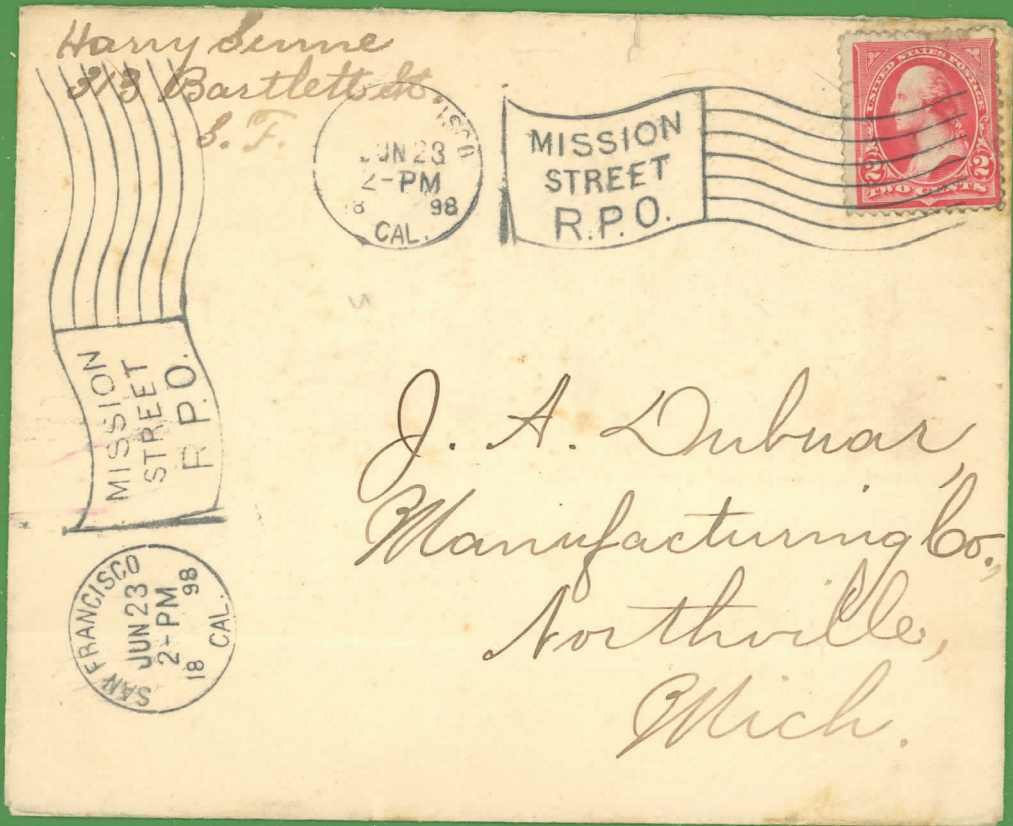 Harry Senne
313 Bartlett St
S. F.
CISCO
JUN 23
2-PM
18 98
CAL.
MISSION
STREET
R.P.O.
UNITED STATES POSTAGE
2 2
TWO CENTS
MISSION
STREET
R.P.O.
SAN FRANCISCO
JUN 23
2-PM
18 98
CAL.
J. A. Dubuar,
Manufacturing Co.,
Northville,
Mich.